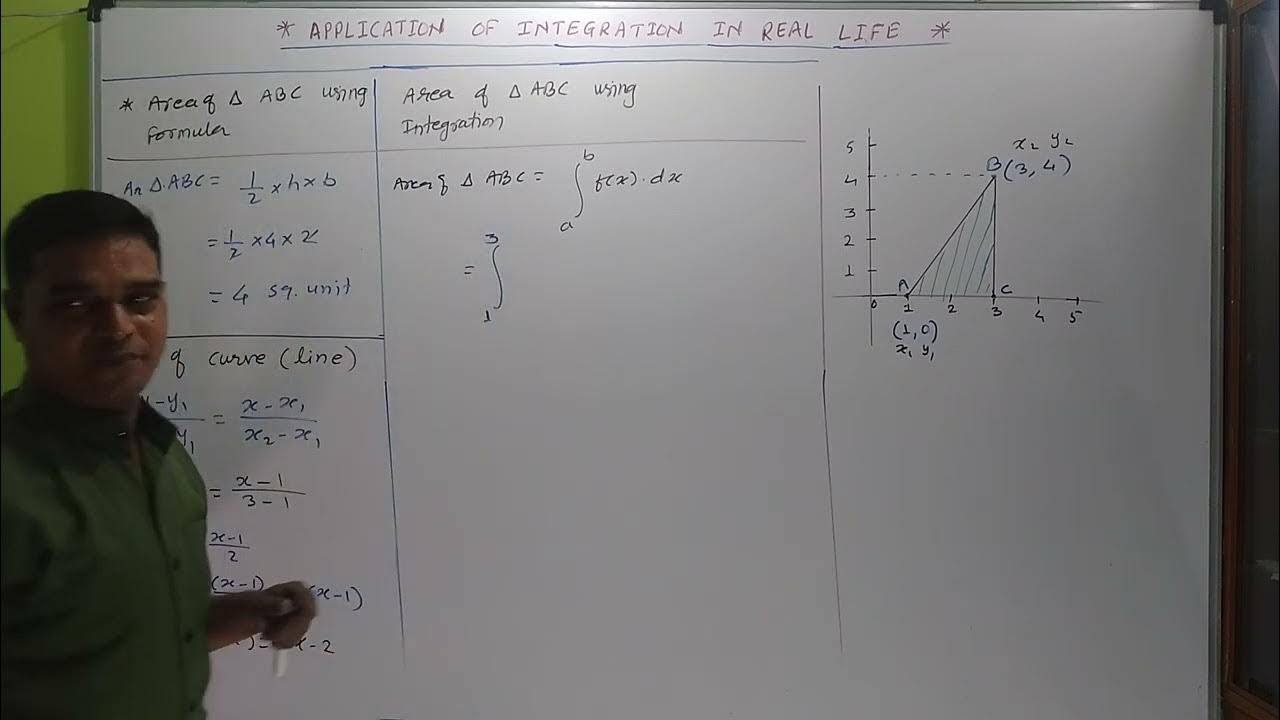 * APPLICATION OF INTEGRATION IN REAL LIFE *
* Area of Δ ABC using
formula
Ar Δ.ABC = 1/2 × h × b
= 1/2 × 4 × 2
= 4 sq. unit
of curve (line)
y - y₁ = x - x₁ / x₂ - x₁
y₁
= x - 1 / 3 - 1
x - 1 / 2
(x - 1) (x - 1)
) = x - 2
Area of Δ ABC using
Integration
Area of Δ ABC = ∫ₐᵇ f(x) . dx
= ∫₁³
5
4
3
2
1
x₂ y₂
B (3, 4)
A C
0 1 2 3 4 5
(1, 0)
x₁ y₁